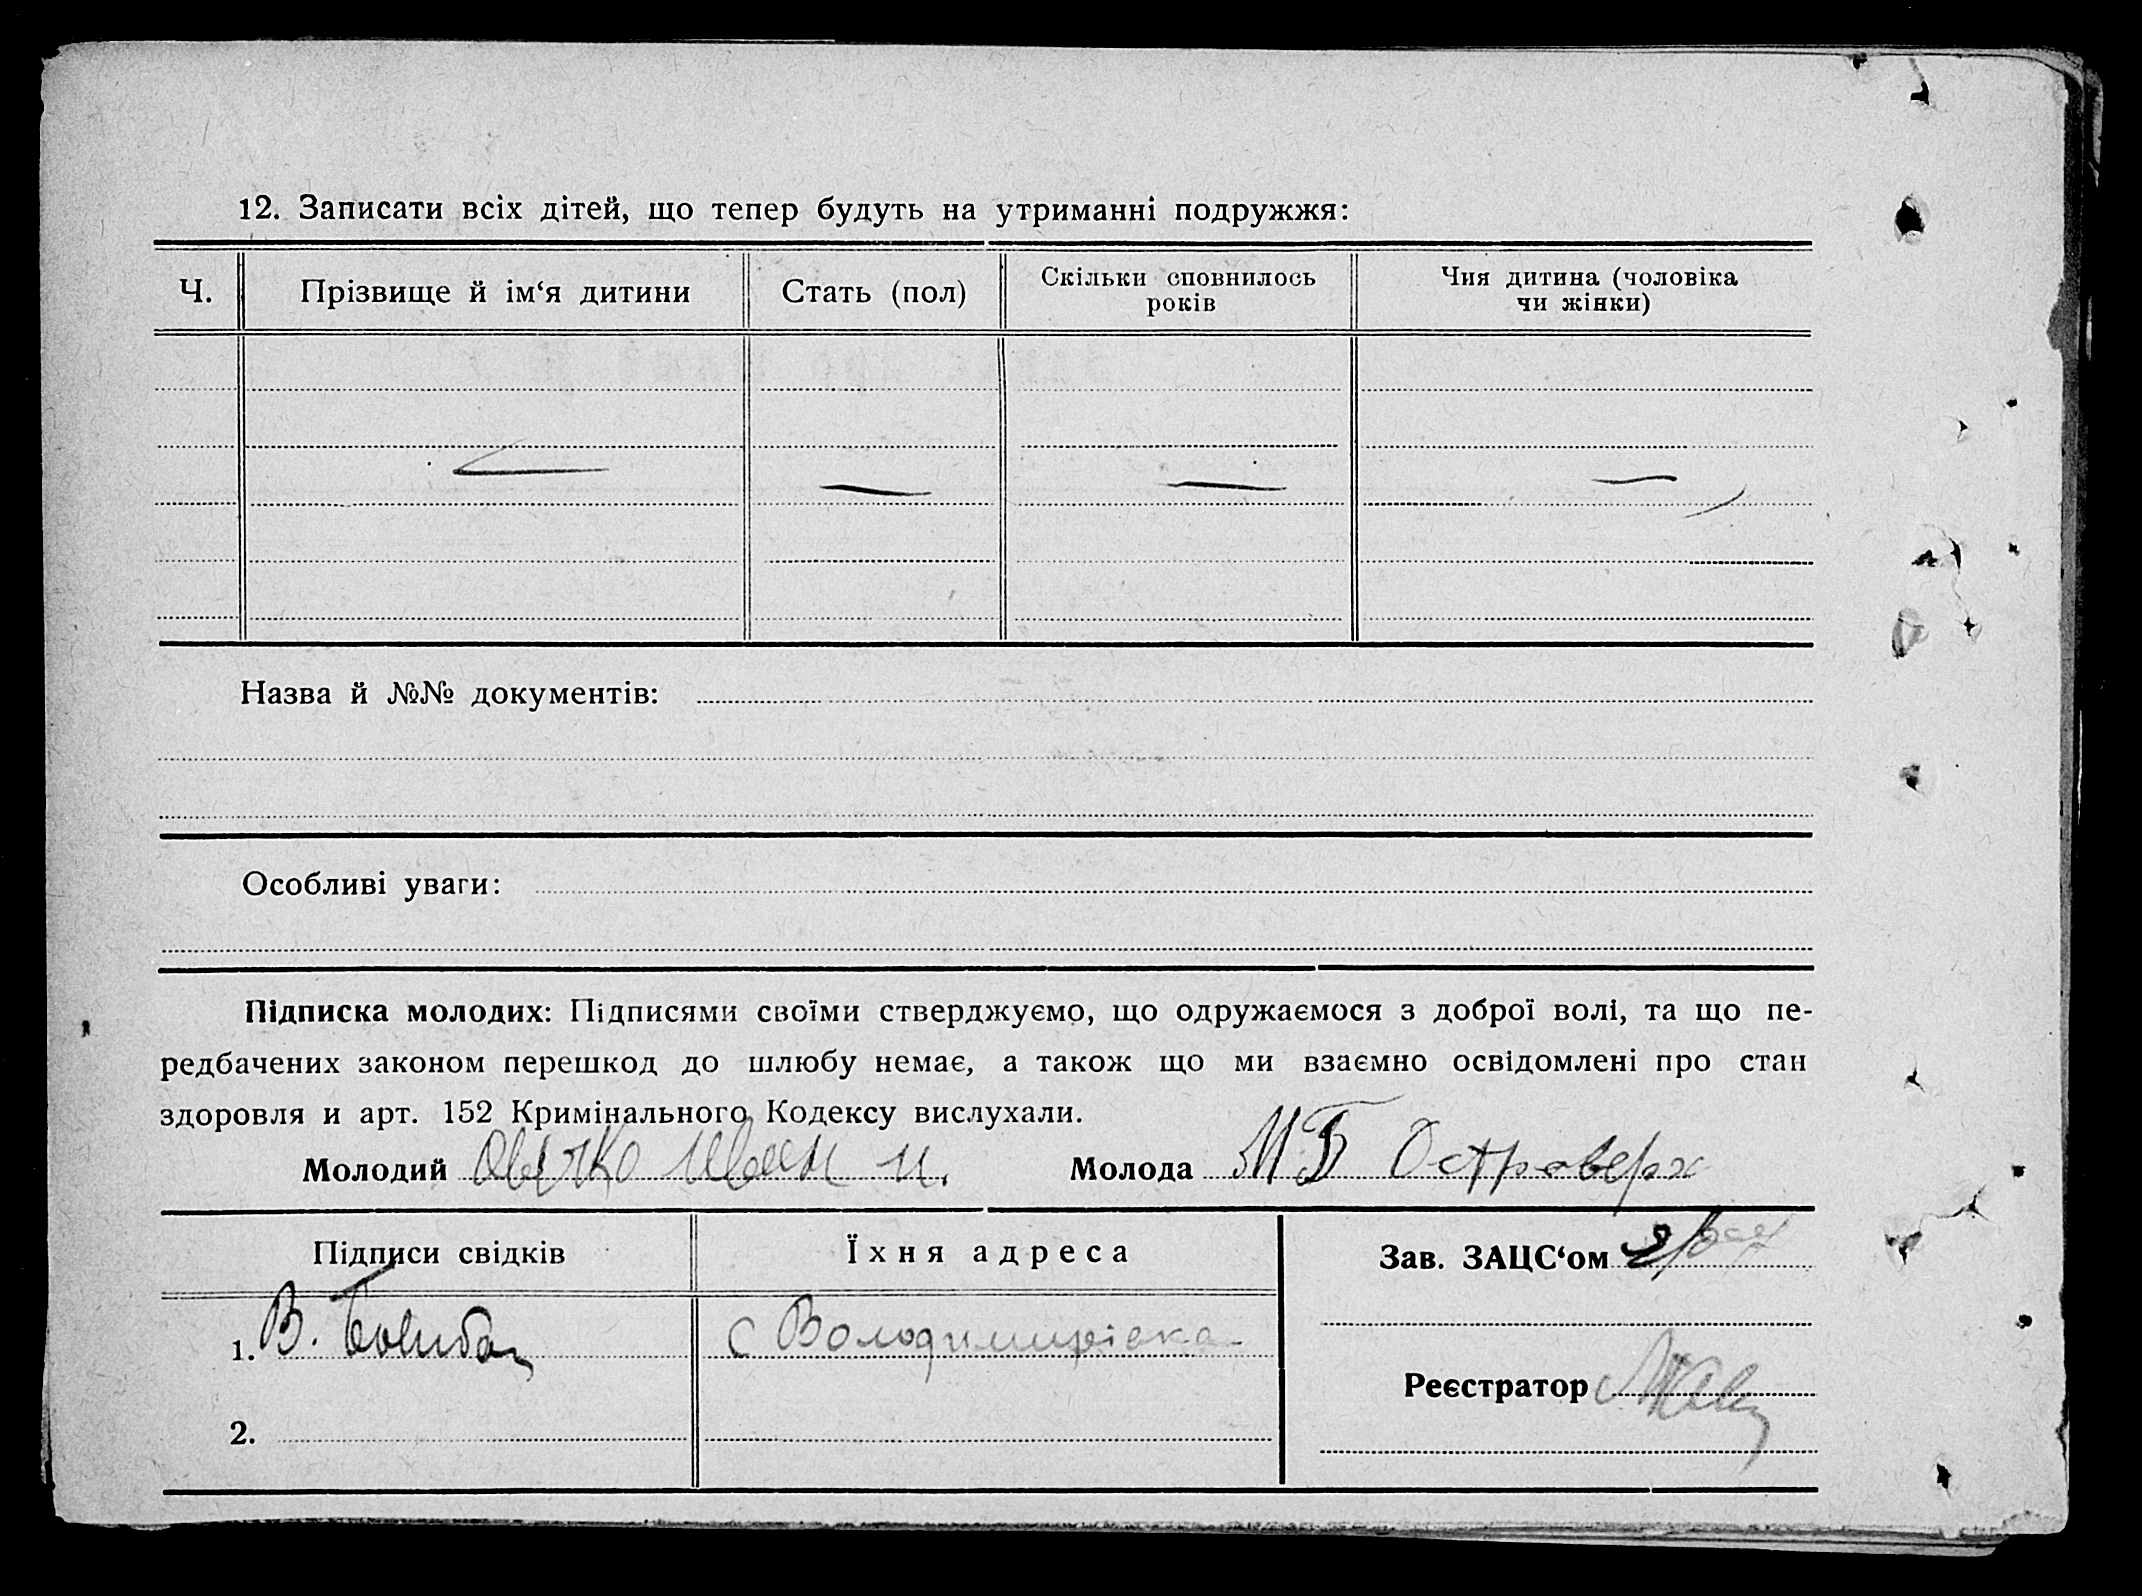 12. Записати всіх дітей, що тепер будуть на утриманні подружжя:
Ч. Прізвище й ім‘я дитини Стать (пол) Скільки сповнилось років Чия дитина (чоловіка чи жінки)
— — — —
Назва й №№ документів:
Особливі уваги:
Підписка молодих: Підписями своїми стверджуємо, що одружаємося з доброї волі, та що пе-
редбачених законом перешкод до шлюбу немає, а також що ми взаємно освідомлені про стан
здоровля и арт. 152 Кримінального Кодексу вислухали.
Молодий Иван И. Молода М Б Островерх
Підписи свідків Їхня адреса Зав. ЗАЦС‘ом
1. В. с Володимирівка
Реєстратор
2.